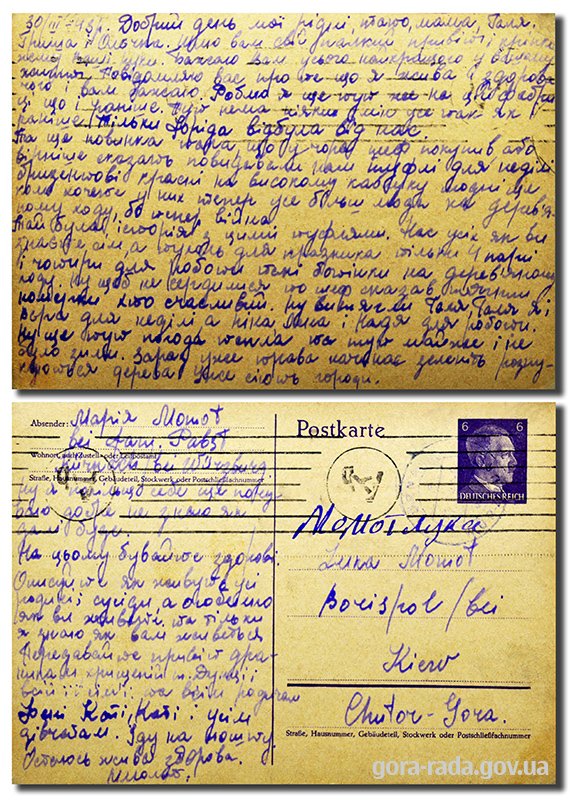 30/III-43р. Добрий день мої рідні, тато, мама, Галя,
Гриша і Ольочка. Шлю вам свій палкий привіт і кріпко
жему ваші руки. Бажаю вам усього найкращого у вашому
житті. Повідомляю вас про те що я жива і здорова
чого і вам бажаю. Роблю я ще тут же на цій фабри
ці що і раніше. Тут нема ніяких змін усе так як
раніше. Тільки Фріда відбула від нас.
Та ще новинка така що учора шеф покупив або
вірніше сказать повидавали нам туфлі для неділі
брезентові красні на високому каблуку
кого хочете у них тепер усе більш люди на дерев'я
ному ходу, бо тепер війна.
Тай була історія з цими туфлями. Нас усіх як ви
знаєте сім, а туфель для празника тільки 4 парі
і чотири для роботи такі ботінки на дерев'яному
ходу. Ну щоб не сердилися то шеф сказав тягним
номерки хто счасливий. Ну витягли Галя, Галя я і
Вєра для неділі а Ніна Ліна і Надя для роботи.
Ну ще тут погода тепла та тут майже і не
було зими. Зараз уже трава начинає зеленіть розпу-
скаються дерева уже сіють городи.
Absender: Марія Момот
bei Fam. Pabst
Wohnort, auch Zustell- oder Leitpostamt
bei Würzburg
Straße, Hausnummer, Gebäudeteil, Stockwerk oder Postschließfachnummer
ну я пільщу себе ще почу-
ваю добре не знаю як
далі буде.
На цьому бувайте здорові.
Опишіте як живуть усі
родичі, сусіди, а особенно
як ви живете, та тільки
я знаю як вам живеться
Передавайте привіт
хрещеній т. Дунці і
всій її сім'ї та всім родичам
Фені Каті, Каті і усім
дівчатам. Іду на пошту.
Остаюсь жива здорова.
Момот.
Postkarte
6 6
DEUTSCHES REICH
Момот Лука
Luka Momot
Borispol / bei
Kiew
Chutor-Gora.
Straße, Hausnummer, Gebäudeteil, Stockwerk oder Postschließfachnummer
gora-rada.gov.ua